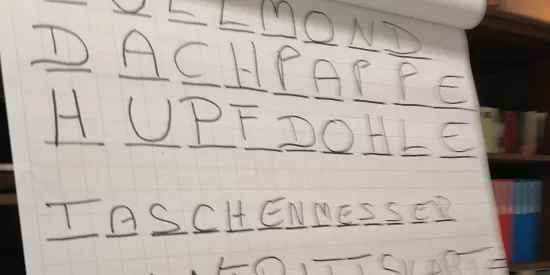 VOLLMOND
DACHPAPPE
HUPFDOHLE
TASCHENMESSER